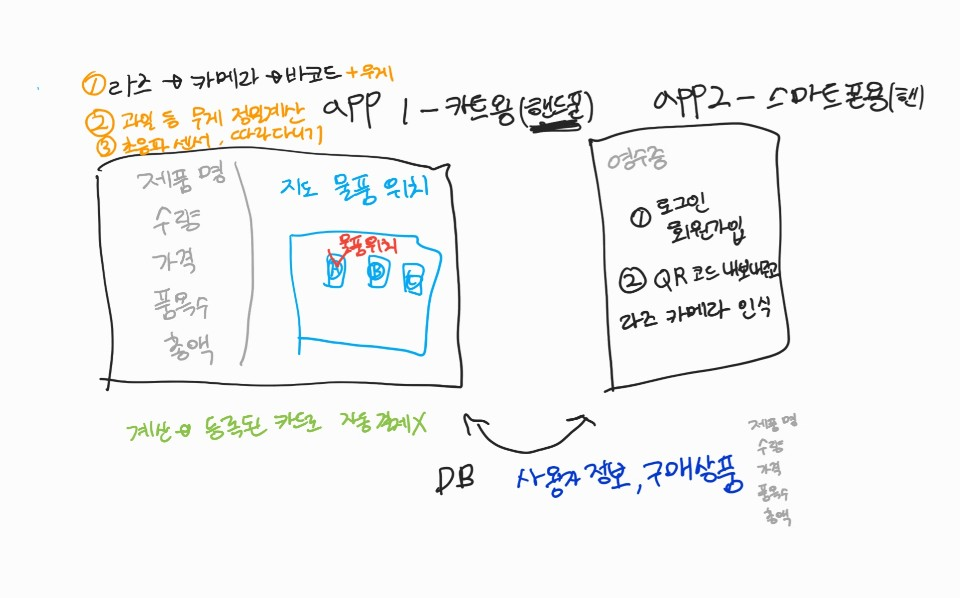 ① 라즈 → 카메라 → 바코드 + 무게
② 과일 등 무게 정밀계산
③ 초음파 센서, 따라다니기
app 1 - 카트용(핸드폰)
제품명
수량
가격
품목수
총액
지도 물품 위치
물품위치
A B C
계산 → 등록된 카드로 자동결제X
app2 - 스마트폰용(핸)
영수증
① 로그인
회원가입
② QR코드 내보내고
라즈 카메라 인식
DB 사용자 정보, 구매상품
제품명
수량
가격
품목수
총액